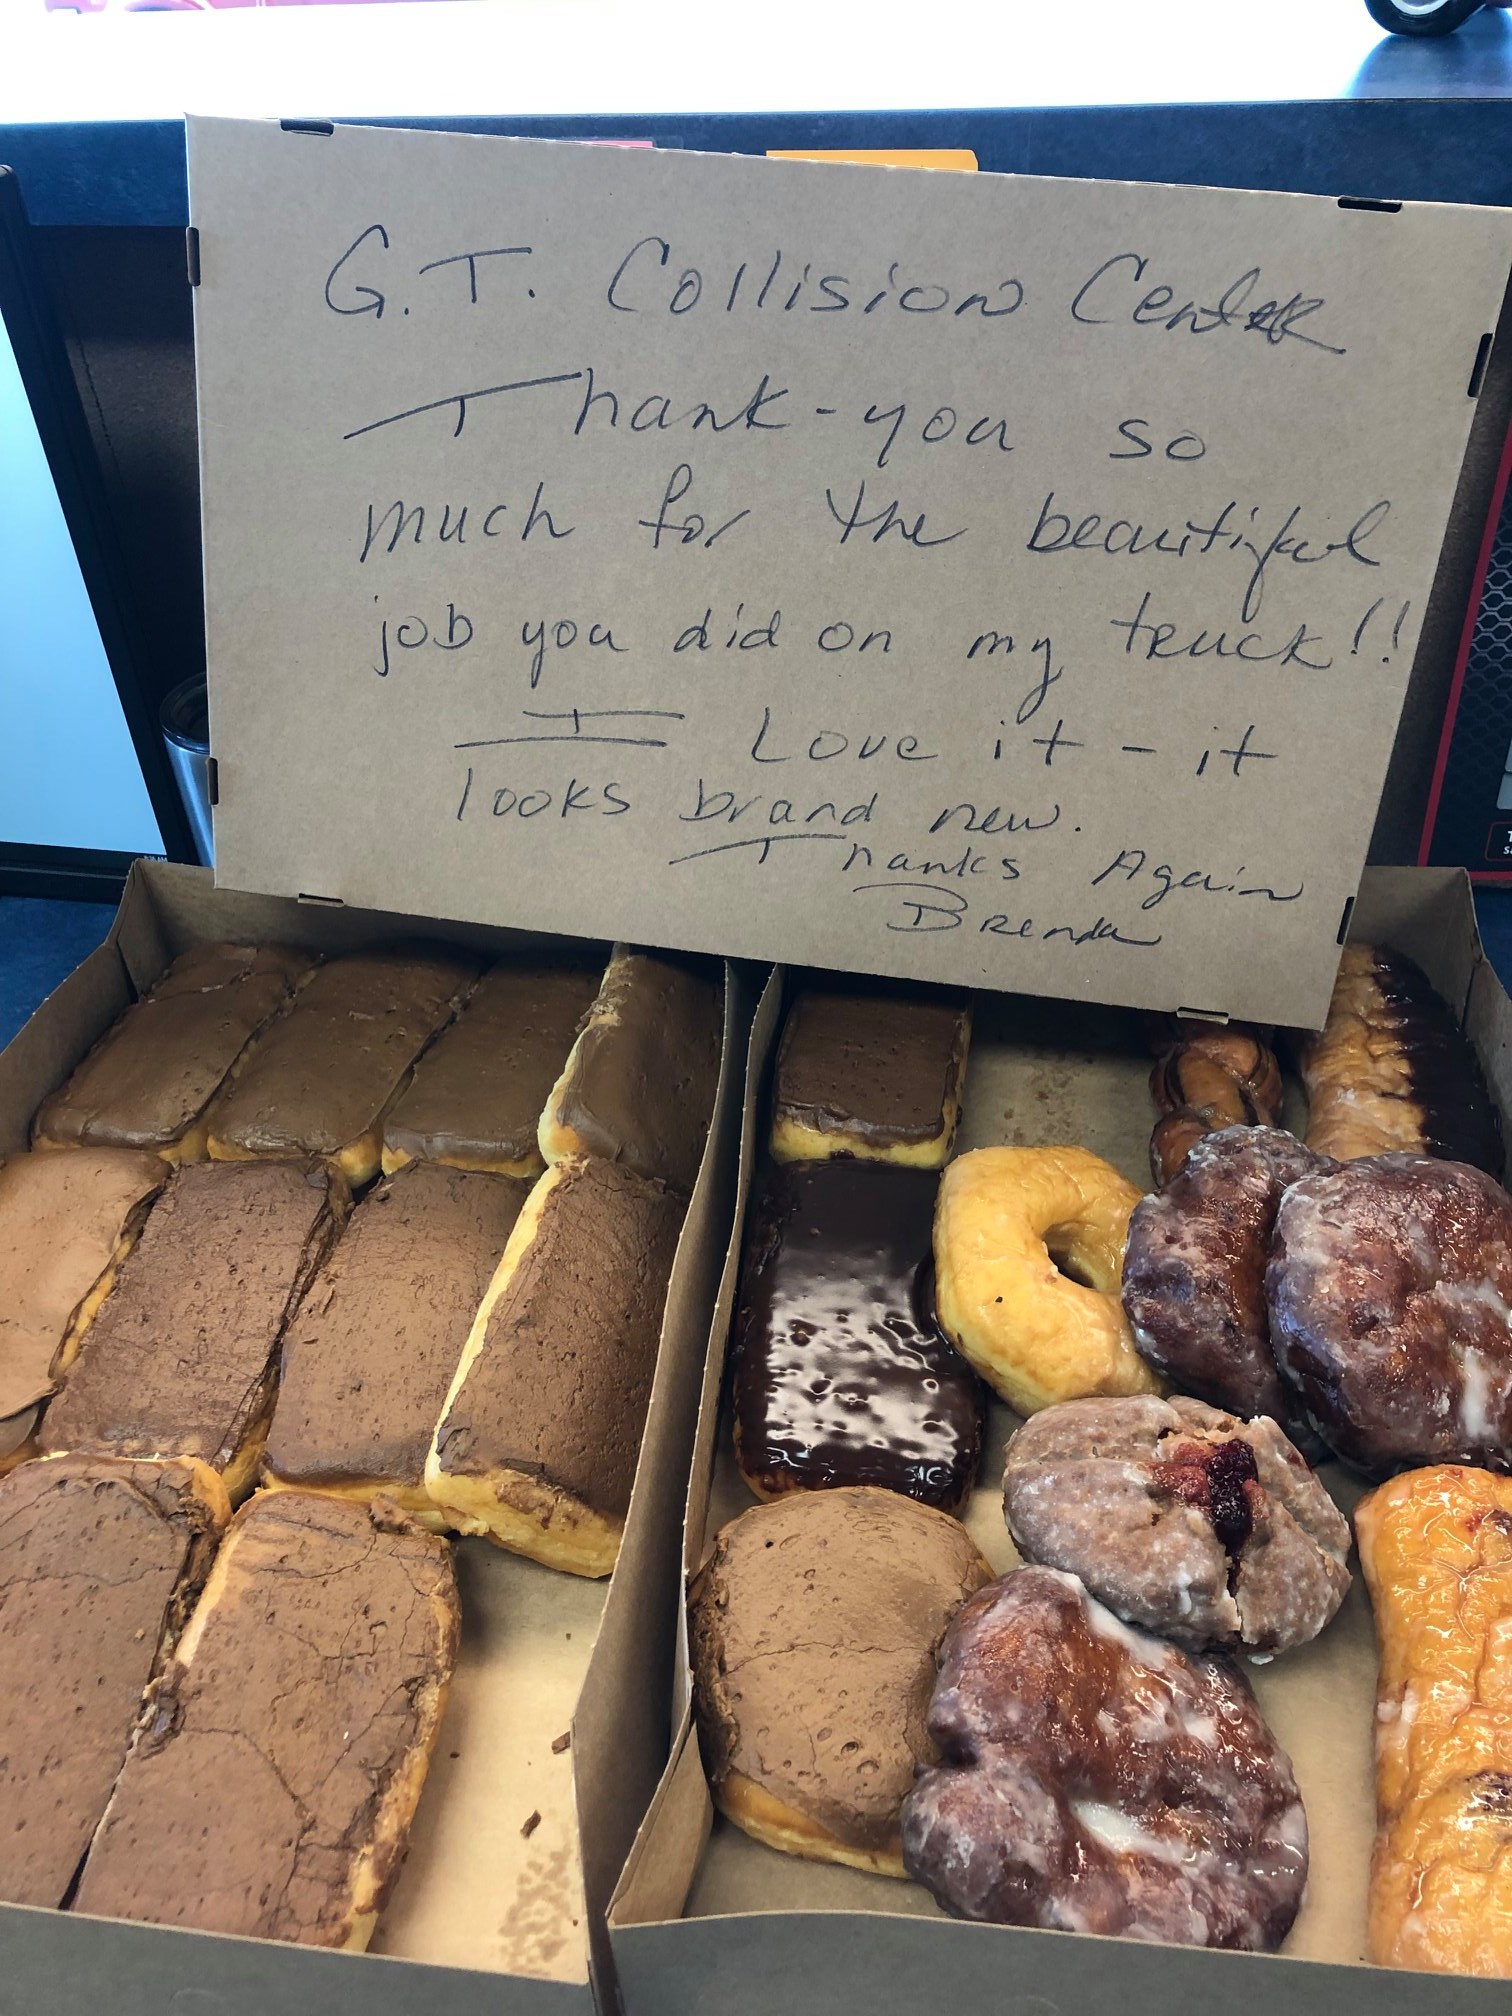 G.T. Collision Center
Thank-you so
much for the beautiful
job you did on my truck!!
I Love it - it
looks brand new.
Thanks Again
Brenda